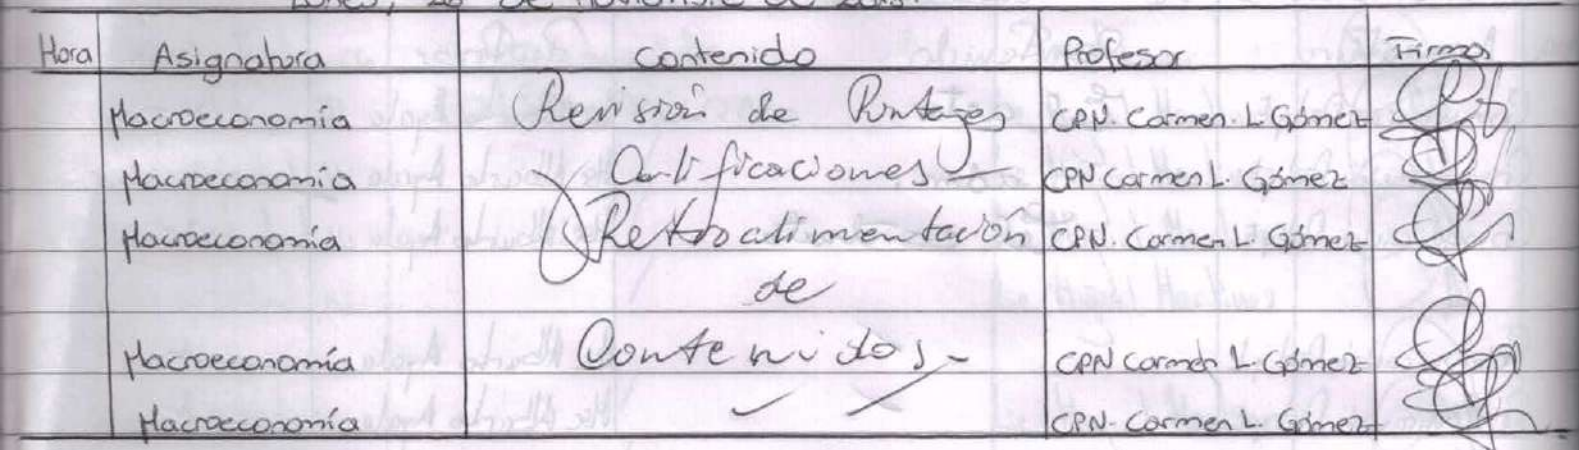 Hora Asignatura Contenido Profesor Firma
Macroeconomía Revisión de Puntajes CPN. Carmen. L. Gómez
Macroeconomía Calificaciones CPN Carmen L. Gómez
Macroeconomía Retroalimentación CPN. Carmen L. Gómez
de
Macroeconomía Contenidos.- CPN Carmen L. Gómez
Macroeconomía CPN. Carmen L. Gómez